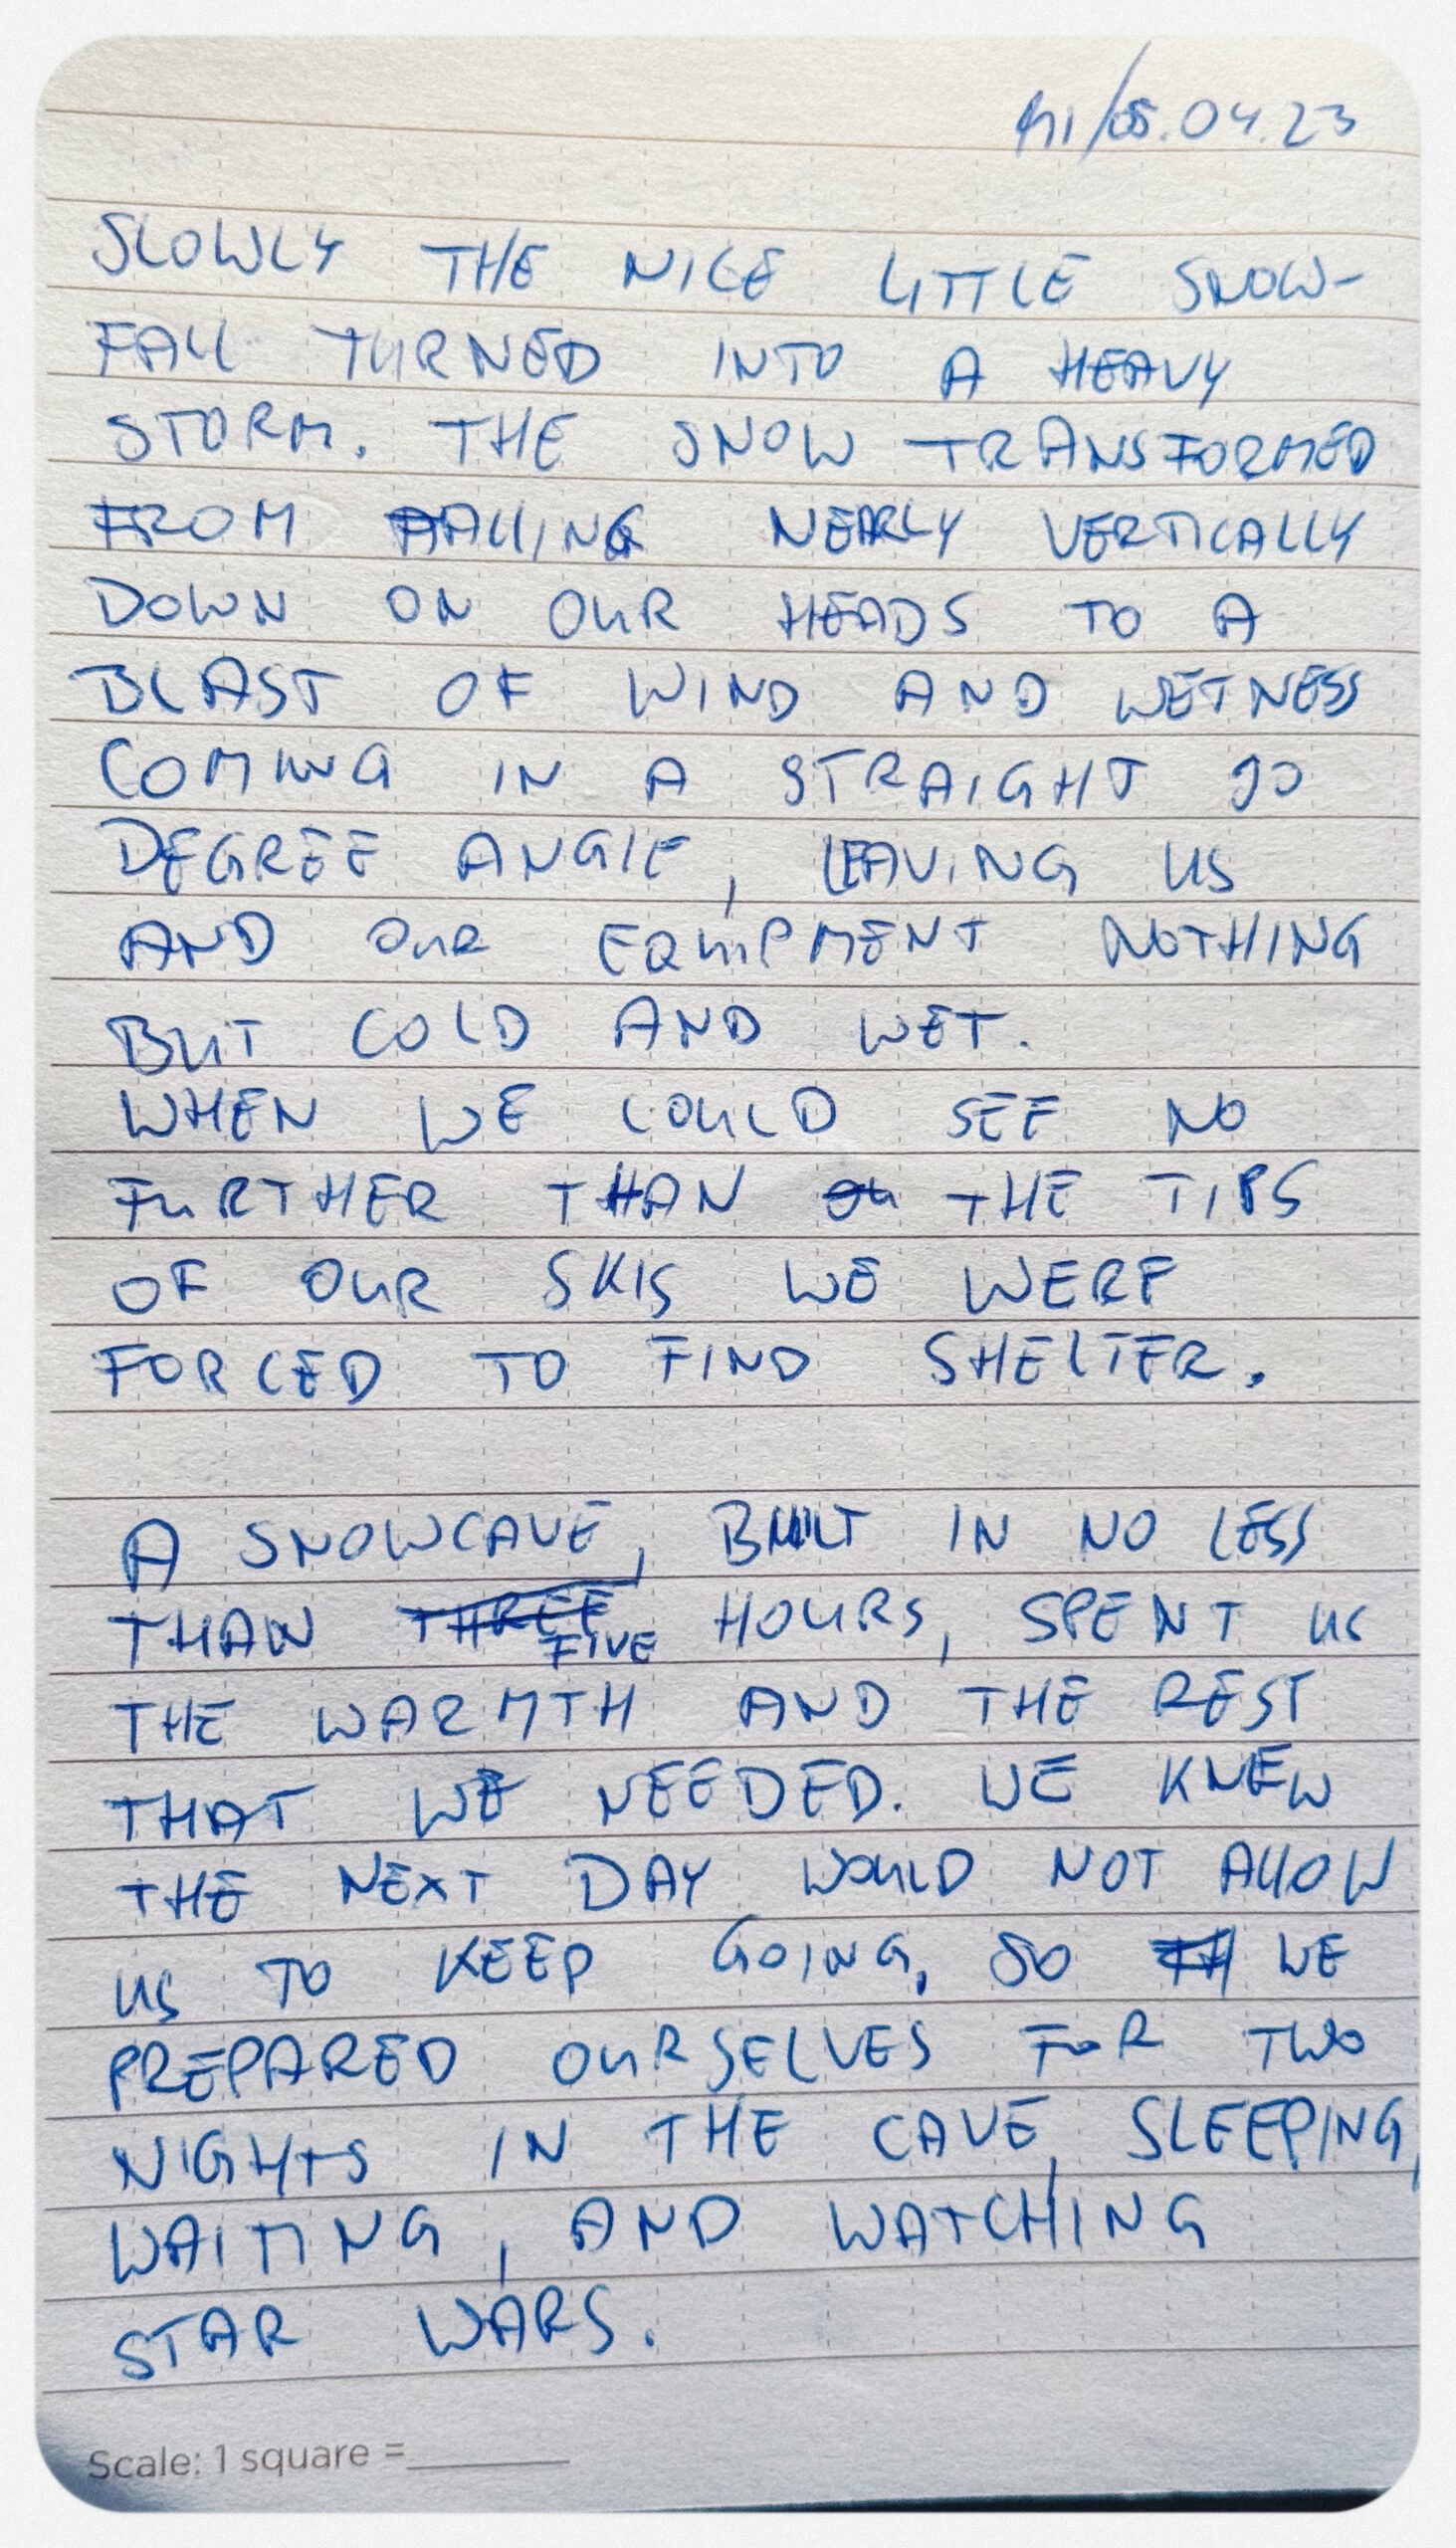 Mi/05.04.23
SLOWLY THE NICE LITTLE SNOW-
FALL TURNED INTO A HEAVY
STORM. THE SNOW TRANSFORMED
FROM FALLING NEARLY VERTICALLY
DOWN ON OUR HEADS TO A
BLAST OF WIND AND WETNESS
COMING IN A STRAIGHT 90
DEGREE ANGLE, LEAVING US
AND OUR EQUIPMENT NOTHING
BUT COLD AND WET.
WHEN WE COULD SEE NO
FURTHER THAN ou THE TIPS
OF OUR SKIS WE WERE
FORCED TO FIND SHELTER.
A SNOWCAVE, BUILT IN NO LESS
THAN THREE FIVE HOURS, SPENT US
THE WARMTH AND THE REST
THAT WE NEEDED. WE KNEW
THE NEXT DAY WOULD NOT ALLOW
US TO KEEP GOING, SO WE
PREPARED OURSELVES FOR TWO
NIGHTS IN THE CAVE, SLEEPING,
WAITING, AND WATCHING
STAR WARS.
Scale: 1 square =